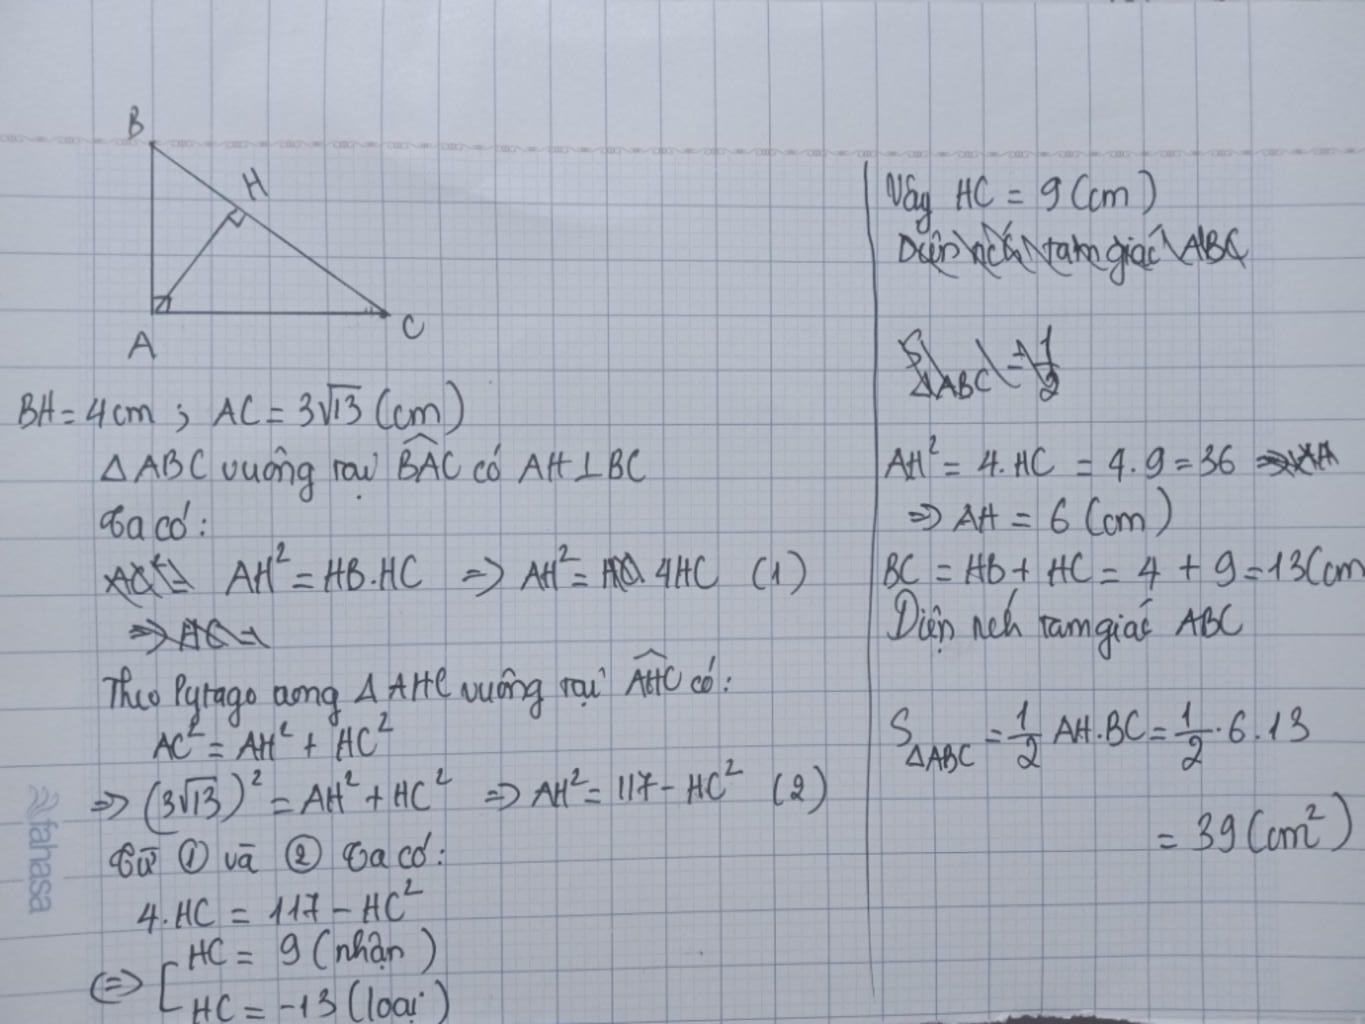 B
H
A
C
BH = 4cm ; AC = 3√13 (cm)
△ABC vuông tại BAC có AH ⊥ BC
Ta có:
AH² = HB.HC ⇒ AH² = 4HC (1)
Theo Pytago trong △AHC vuông tại AHC có:
AC² = AH² + HC²
⇒ (3√13)² = AH² + HC² ⇒ AH² = 117 - HC² (2)
Từ ① và ② Ta có:
4.HC = 117 - HC²
⇔ [ HC = 9 (nhận)
HC = -13 (loại)
Vậy HC = 9 (cm)
Diện tích tam giác ABC
S△ABC = 1/2
AH² = 4.HC = 4.9 = 36
⇒ AH = 6 (cm)
BC = HB + HC = 4 + 9 = 13 (cm
Diện tích tam giác ABC
S△ABC = 1/2 AH.BC = 1/2 . 6 . 13
= 39 (cm²)
fahasa